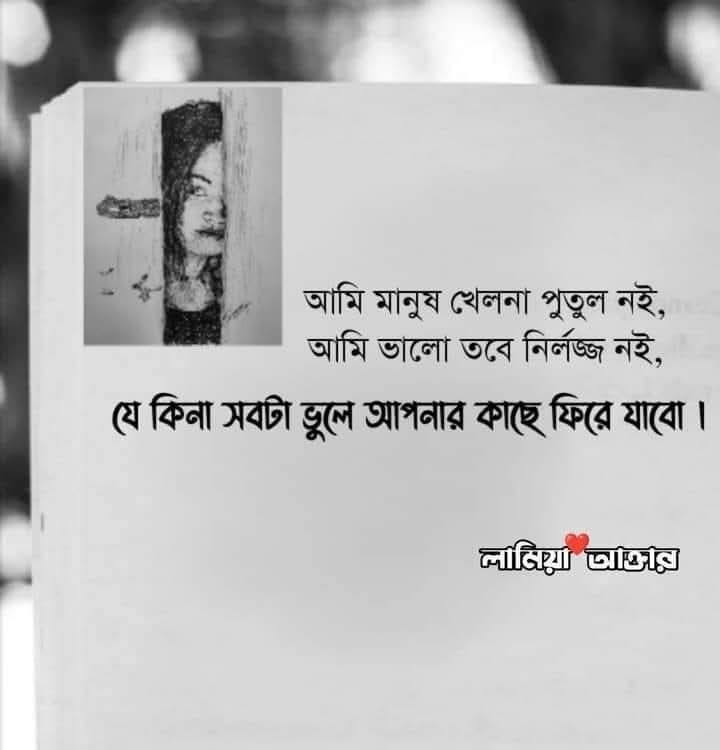 আমি মানুষ খেলনা পুতুল নই,
আমি ভালো তবে নির্লজ্জ নই,
যে কিনা সবটা ভুলে আপনার কাছে ফিরে যাবো ।
লামিয়া❤️আক্তার